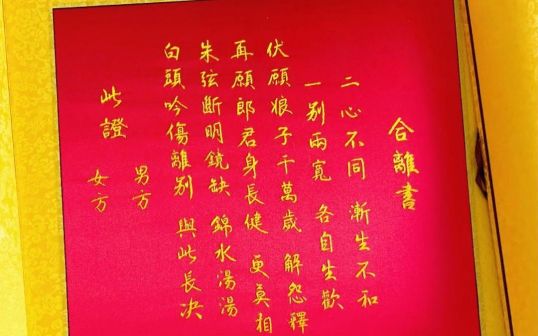 合離書
二心不同 漸生不和
一别兩寬 各自生歡
伏願娘子千萬歲 解怨釋
再願郎君身長健 更莫相
朱弦斷明鏡缺 錦水湯湯
白頭吟傷離别 與此長决
此證
男方
女方